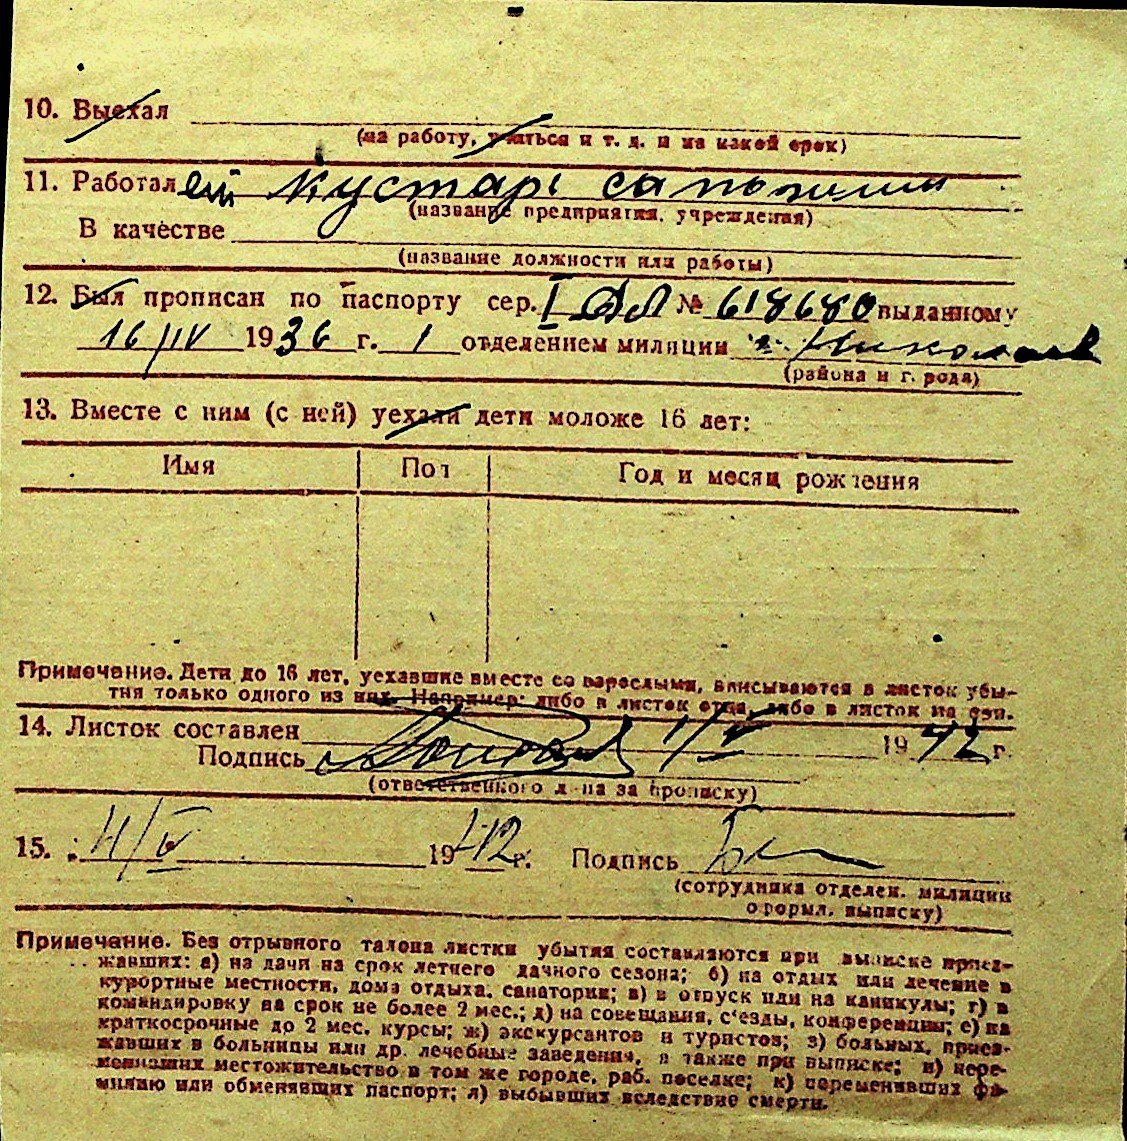 10. Выехал
(на работу, учиться и т. д. и на какой срок)
11. Работал кустарь сапожник
(название предприятия, учреждения)
В качестве
(название должности или работы)
12. Был прописан по паспорту сер. I № 618680 выданному
16/IV 1936 г. 1 отделением милиции г. Николаев
(района и г. рода)
13. Вместе с ним (с ней) уехали дети моложе 16 лет:
Имя Пол Год и месяц рождения
Примечание. Дети до 16 лет, уехавшие вместе со взрослыми, вписываются в листок убы-
тия только одного из них. Например: либо в листок отца, либо в листок матери.
14. Листок составлен 1/V 1942 г.
Подпись
(ответственного л-ца за прописку)
15. 4/V 1942 г. Подпись
(сотрудника отделен. милиции
оформл. выписку)
Примечание. Без отрывного талона листки убытия составляются при выписке приез-
жавших: а) на дачи на срок летнего дачного сезона; б) на отдых или лечение в
курортные местности, дома отдыха, санатории; в) в отпуск или на каникулы; г) в
командировку на срок не более 2 мес.; д) на совещания, с'езды, конференции; е) на
краткосрочные до 2 мес. курсы; ж) экскурсантов и туристов; з) больных, приез-
жавших в больницы или др. лечебные заведения, а также при выписке; и) пере-
менивших местожительство в том же городе, раб. поселке; к) переменивших фа-
милию или обменявших паспорт; л) выбывших вследствие смерти.